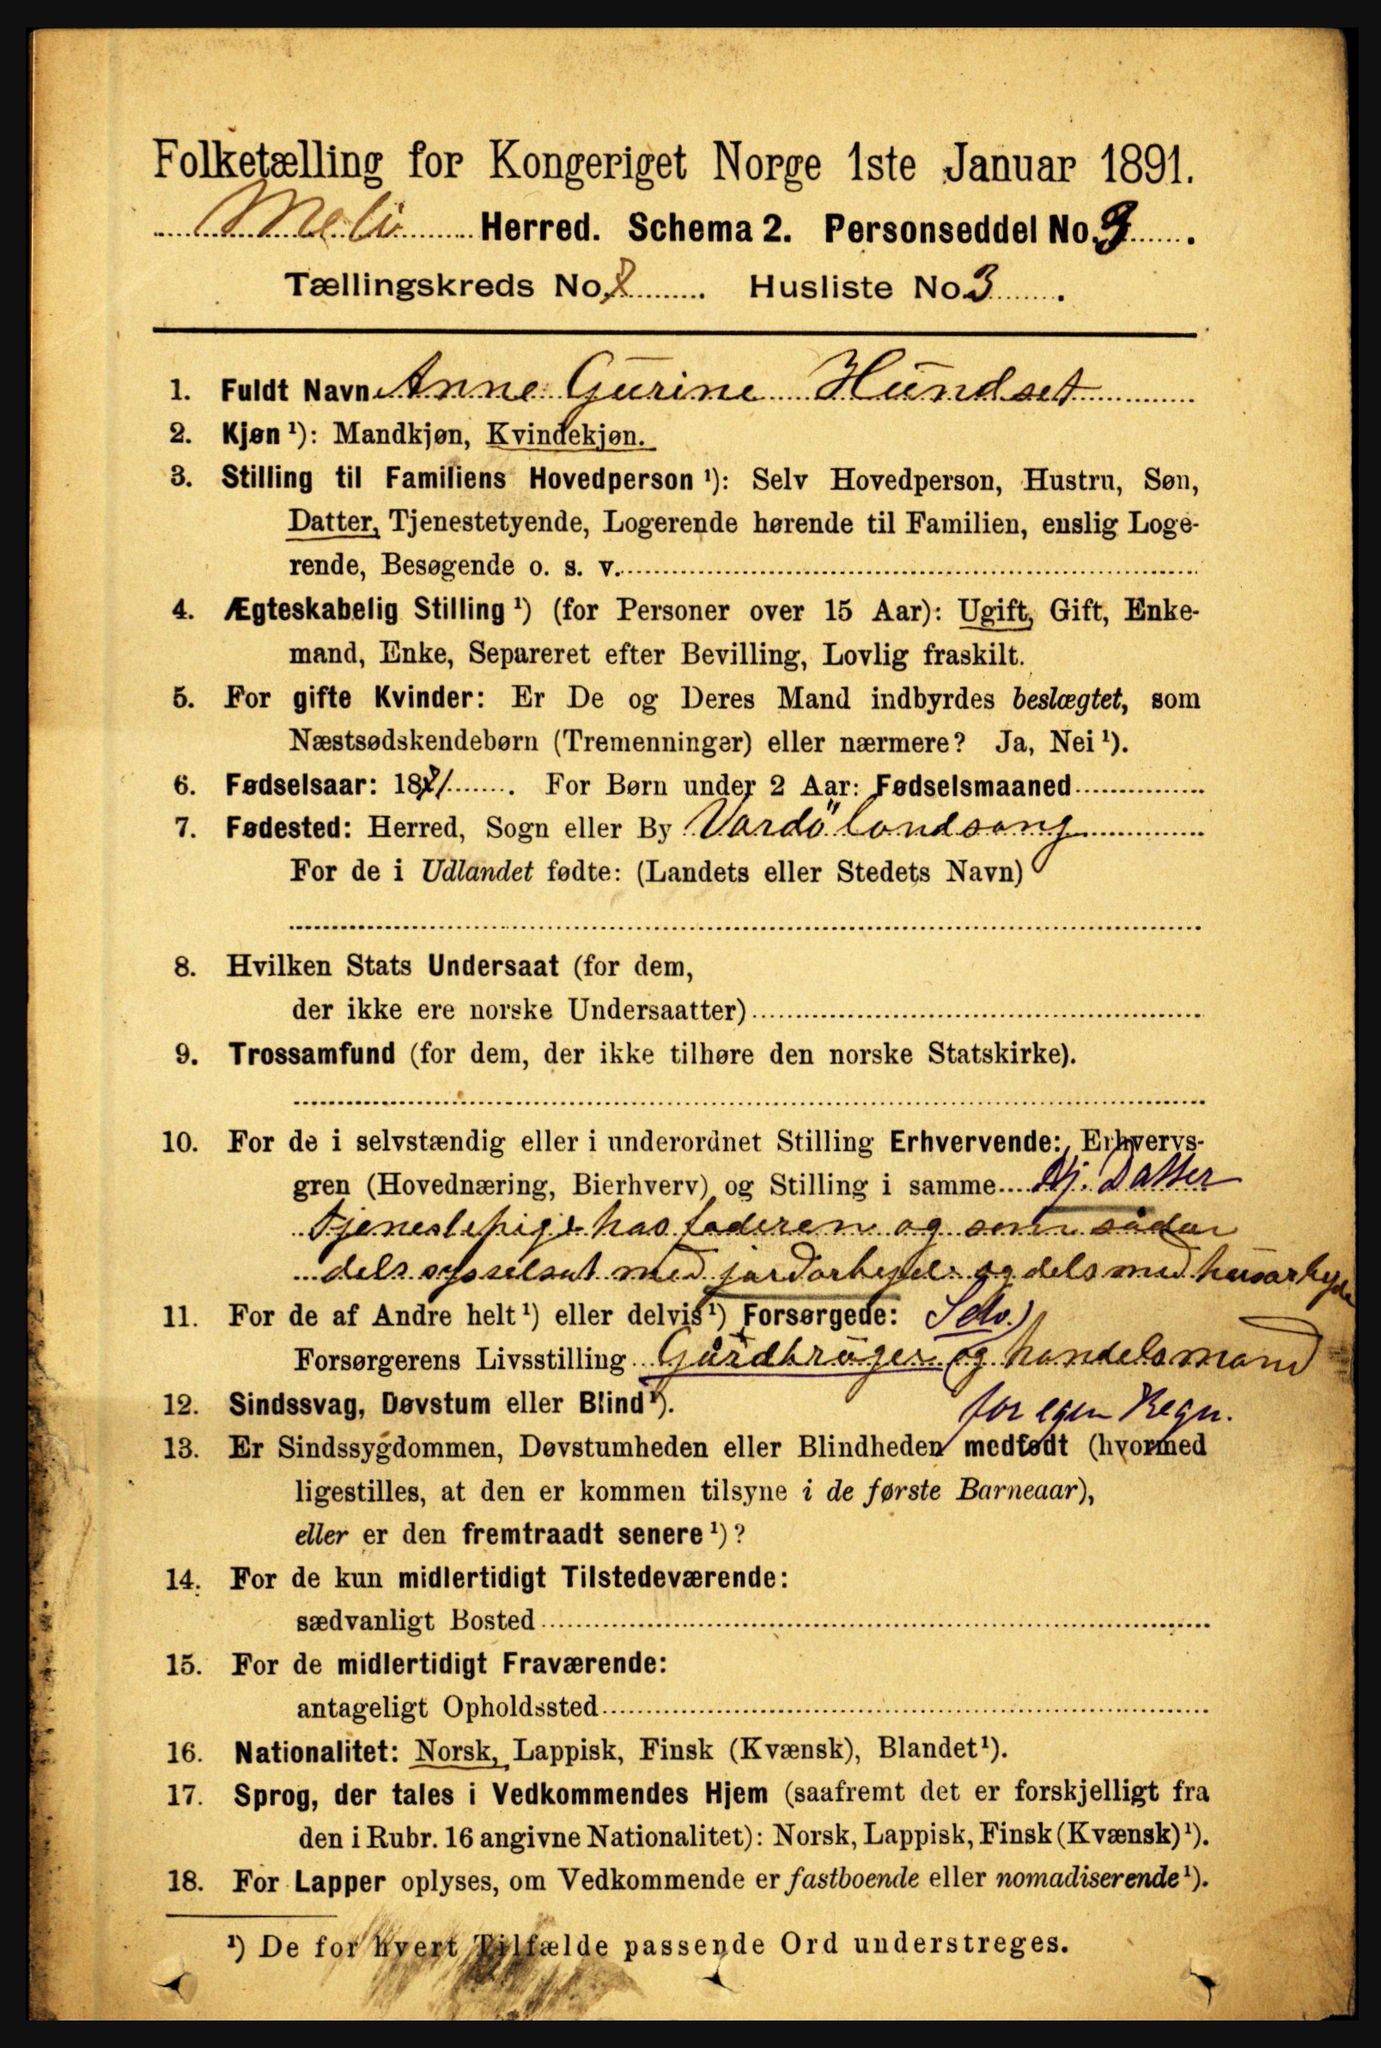 Folketælling for Kongeriget Norge 1ste Januar 1891.
Melø Herred. Schema 2. Personseddel No. 3.
Tællingskreds No. 8. Husliste No. 3.
1. Fuldt Navn Anne Gurine Hundset
2. Kjøn ¹): Mandkjøn, Kvindekjøn.
3. Stilling til Familiens Hovedperson ¹): Selv Hovedperson, Hustru, Søn,
Datter, Tjenestetyende, Logerende hørende til Familien, enslig Loge-
rende, Besøgende o. s. v.
4. Ægteskabelig Stilling ¹) (for Personer over 15 Aar): Ugift, Gift, Enke-
mand, Enke, Separeret efter Bevilling, Lovlig fraskilt.
5. For gifte Kvinder: Er De og Deres Mand indbyrdes beslægtet, som
Næstsødskendebørn (Tremenninger) eller nærmere? Ja, Nei ¹).
6. Fødselsaar: 1871. For Børn under 2 Aar: Fødselsmaaned
7. Fødested: Herred, Sogn eller By Vardö landsogn
For de i Udlandet fødte: (Landets eller Stedets Navn)
8. Hvilken Stats Undersaat (for dem,
der ikke ere norske Undersaatter)
9. Trossamfund (for dem, der ikke tilhøre den norske Statskirke).
10. For de i selvstændig eller i underordnet Stilling Erhvervende: Erhvervs-
gren (Hovednæring, Bierhverv) og Stilling i samme Hj. Datter
Tjenestepige hos faderen og som sådan
dels sysselsat med jordarbejde og dels med husarbejde
11. For de af Andre helt ¹) eller delvis ¹) Forsørgede: Selv.
Forsørgerens Livsstilling Gårdbruger og handelsmand
for egen Regn.
12. Sindssvag, Døvstum eller Blind ¹).
13. Er Sindssygdommen, Døvstumheden eller Blindheden medfødt (hvormed
ligestilles, at den er kommen tilsyne i de første Barneaar),
eller er den fremtraadt senere ¹)?
14. For de kun midlertidigt Tilstedeværende:
sædvanligt Bosted
15. For de midlertidigt Fraværende:
antageligt Opholdssted
16. Nationalitet: Norsk, Lappisk, Finsk (Kvænsk), Blandet ¹).
17. Sprog, der tales i Vedkommendes Hjem (saafremt det er forskjelligt fra
den i Rubr. 16 angivne Nationalitet): Norsk, Lappisk, Finsk (Kvænsk) ¹).
18. For Lapper oplyses, om Vedkommende er fastboende eller nomadiserende ¹).
¹) De for hvert Tilfælde passende Ord understreges.